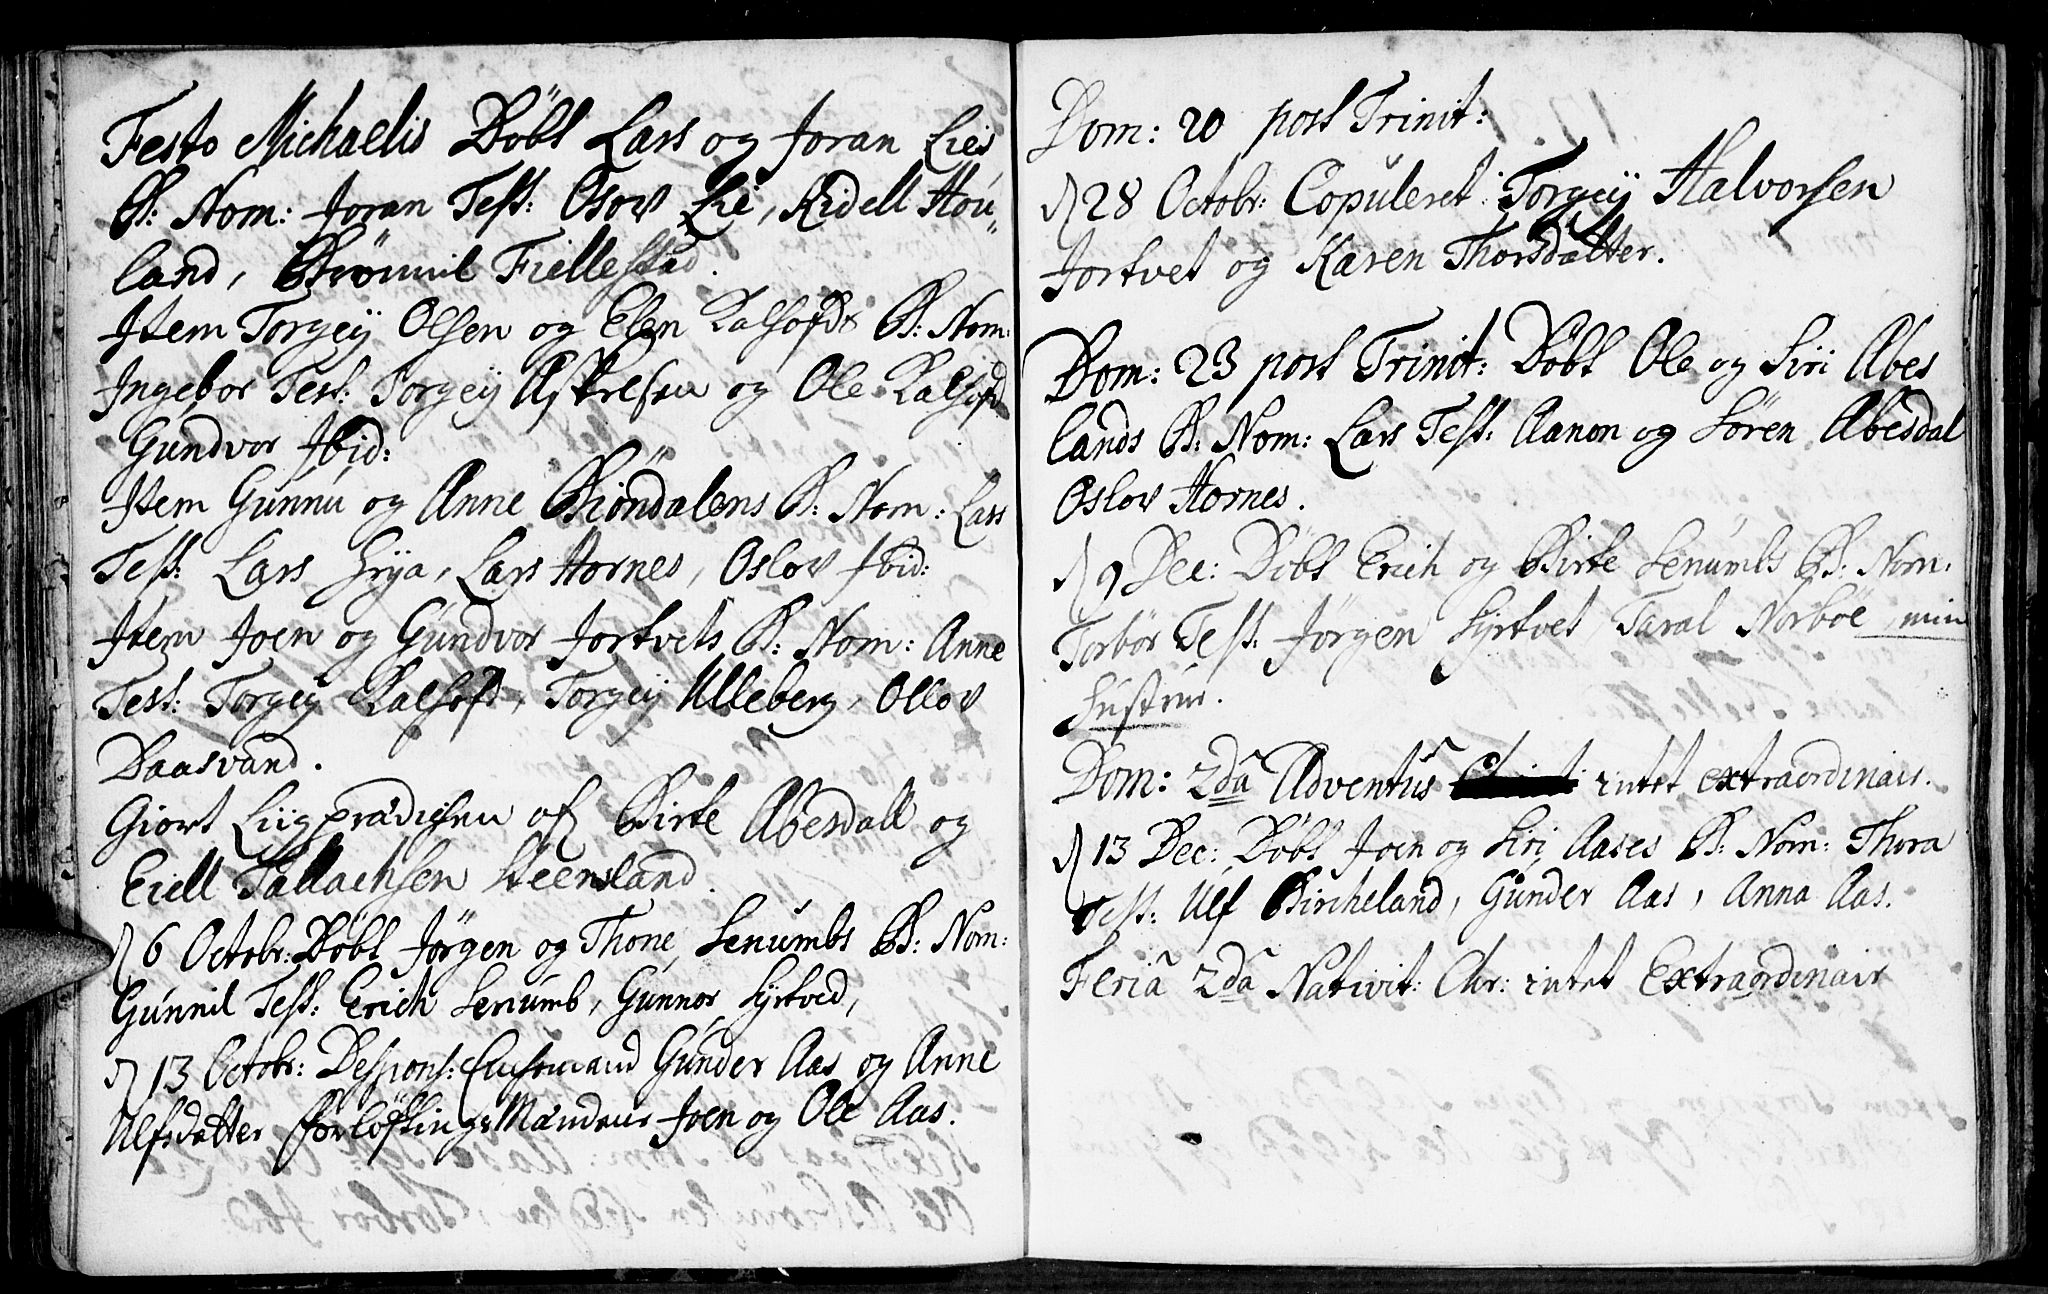 Festo Michaelis Döbt Lars og Joran Lies
B: Nom: Joran Test: Osov Lie, Kidell Hou-
land, Brönnil Fiellestad.
Item Torgey Olsen og Elen B: Nom:
Ingebor Test: Torgey og Ole
Gundvor Ibid:
Item Gunnu og Anne Biöndalens B: Nom: Lars
Test: Lars Frya, Lars Hornes, Oslov Ibid:
Item Joen og Gundvor Jortvets B: Nom: Anne
Test: Torgey , Torgey Ulleberg, Ollov
Daasvand.
Giort Liigprædichen of Birte Abesdall og
Eiell Tallachsen Steensland.
D 6 Octobr: Döbt Jörgen og Thone Senumbs B: Nom:
Gunnil Test: Erich Senumb, Gunnor Syrtved,
D 13 Octobr: Despons: Gunder Aas og Anne
Ulfsdatter Forlöftings Mændene Joen og Ole Aas.
Dom: 20 post Trinit:
D 28 Octobr: Copuleret Torgey Halvorsen
Jortvet og Karen Thorsdatter.
Dom: 23 post Trinit: Döbt Ole og Siri Abes
lands B: Nom: Lars Test: Aanon og Sören Abesdal
Oslov Hornes.
D 9 Dec: Döbt Erich og Birte Senumbs B: Nom:
Torbör Test: Jörgen Syrtvet Taral Norböe, min
Hustrue.
Dom: 2da Adventus intet extraordinair.
D 13 Dec: Döbt Joen og Siri Aases B: Nom: Thora
Test: Ulf Bircheland, Gunder Aas, Anna Aas.
Feria 2da Nativit: Chr: intet Extraordinair